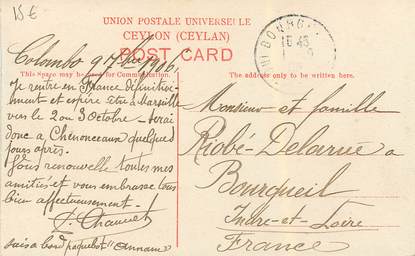 15 €
UNION POSTALE UNIVERSELLE
CEYLON (CEYLAN)
POST CARD
BOURG
This space may be used for Communication.
The address only to be written here.
Colombo 9 7bre 1906
Je rentre en France définitive-
ment et espère être à Marseille
vers le 2 ou 3 Octobre - serai
donc à Chenonceaux quelques
jours après.
Vous renouvelle toutes mes
amitiés et vous embrasse tous
bien affectueusement.
suis a bord paquebot "Annam"
Monsieur et famille
Riobé-Delarue a
Bourgueil
Indre-et-Loire
France